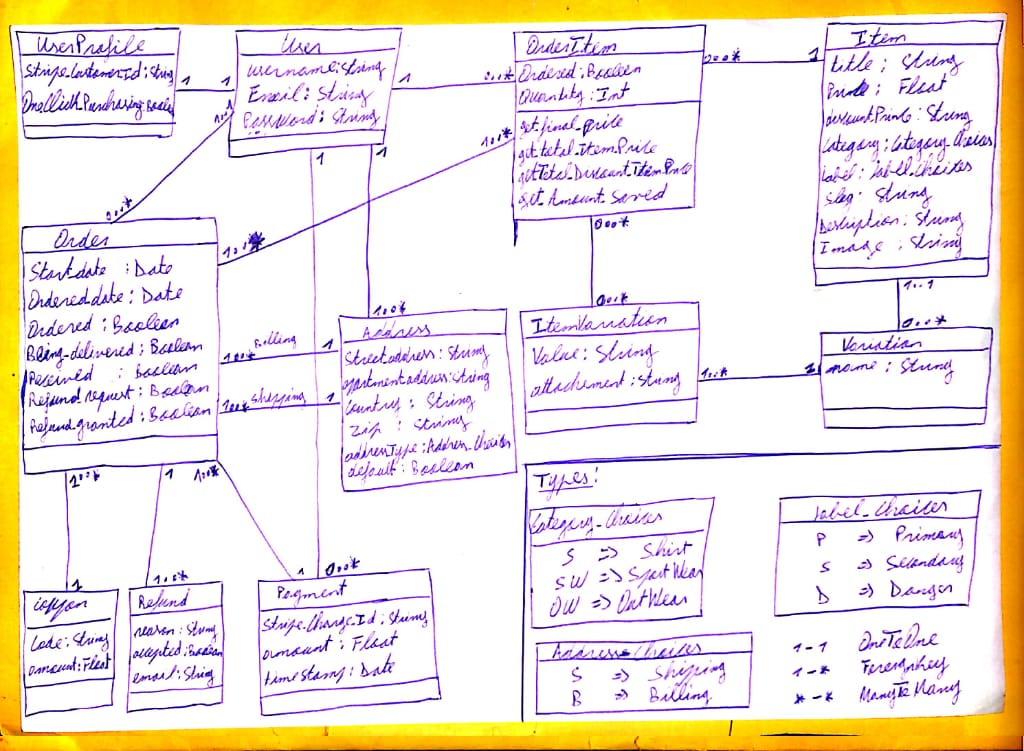 UserProfile
Stripe_Customer_Id : String
OneClick_Purchasing : Boolean
1
1
User
username : String
Email : String
Password : String
1
0..*
OrderItem
Ordered : Boolean
Quantity : Int
get_final_price
get_total_ItemPrice
getTotal_Discount_Item_Price
get_Amount_Saved
0..*
1
Item
title : String
Price : Float
discountPrice : String
Category : Category_Choices
Label : Label_Choices
Slog : String
Description : String
Image : String
1
0..*
1
1
1..*
1..*
Order
Start_date : Date
Ordered_date : Date
Ordered : Boolean
Being_delivered : Boolean
Received : Boolean
Refund_request : Boolean
Refund_granted : Boolean
Billing
1..*
1
Shipping
1..*
1
1..*
Address
Street_address : String
apartment_address : String
Country : String
Zip : String
addressType : Address_Choices
default : Boolean
0..*
0..*
ItemVariation
Value : String
attachement : String
1..*
1
1..1
0..*
Variation
name : String
1..*
1
1..*
1
1..*
1
0..*
Coupon
Code : String
amount : Float
Refund
reason : String
accepted : Boolean
email : String
Payment
Stripe_Charge_Id : String
amount : Float
timeStamp : Date
Types :
Category_Choices
S => Shirt
SW => Sport Wear
OW => OutWear
Label_Choices
P => Primary
S => Secondary
D => Danger
Address_Choices
S => Shipping
B => Billing
1-1 OneToOne
1-* ForeignKey
*-* ManyToMany